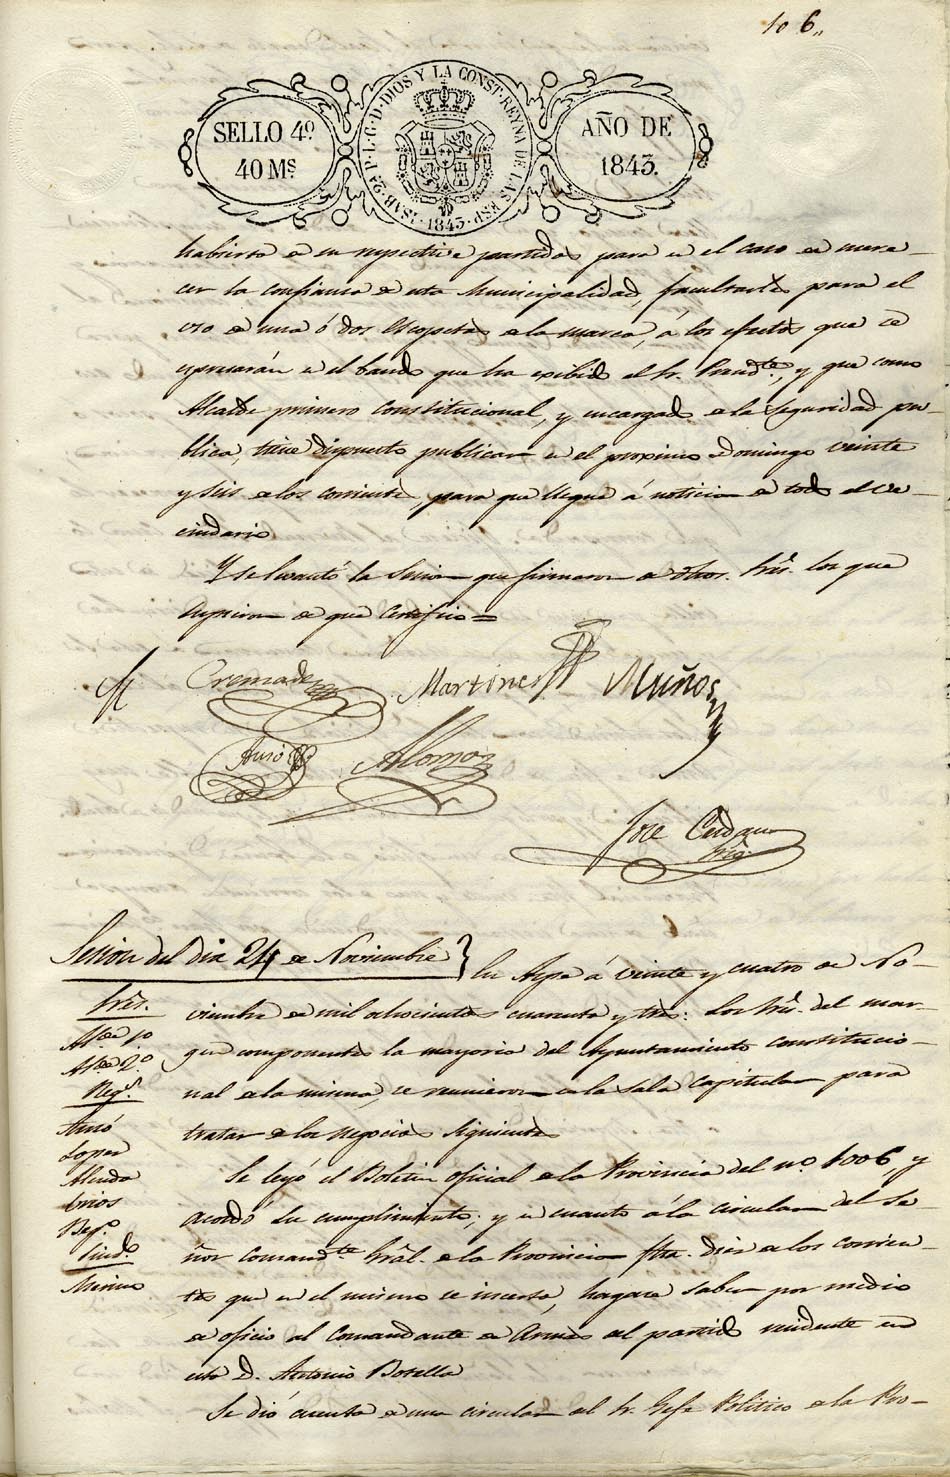 106,,
SELLO 4º
40 Ms
ISAB. 2ª P. L. G. D. DIOS Y LA CONST. REYNA DE LAS ESP.
1843.
AÑO DE
1843.
habierta en su respective partidos para en el caso de mere-
cer la confianza de esta Municipalidad, facultarles para el
uso de una ó dos escopetas de la marca, á los efectos que se
espresarán en el bando que ha exibido el Sr. Presidte, y que como
Alcalde primero Constitucional, y encargado de la seguridad pu-
blica, tiene dispuesto publicar en el proximo Domingo veinte
y seis de los corrientes, para que llegue á noticia de todo el ve-
cindario
Y se levantó la Sesion que firmaron dhos. Sres. los que
supieron de que Certifico =
Cremades
Martines
Muños
Ausó
Alonso
Jose Cerdan
Srio.
Sesion del dia 24 de Noviembre }
En Aspe á veinte y cuatro de No-
viembre de mil ochocientos cuarenta y tres: Los Sres. del mar-
gen componentes la mayoria del Ayuntamiento constitucio-
nal de la misma, se reunieron en la Sala Capitular para
tratar de los negocios siguientes
Sres.
Alde 1º
Alde 2º
Regs.
Ausó
Lopez
Regº
Sindº
Merino
Se leyó el Boletin oficial de la Provincia del nº 1006, y
acordó su cumplimiento; y en cuanto á la circular del Se-
ñor Comandte Gral. de la Provincia fha. diez de los corrien-
tes que en el mismo se inserta, hagase saber por medio
de oficio al Comandante de Armas del partido residente en
esta D. Antonio Botella
Se dió cuenta de una circular del Sr. Gefe Politico de la Pro-